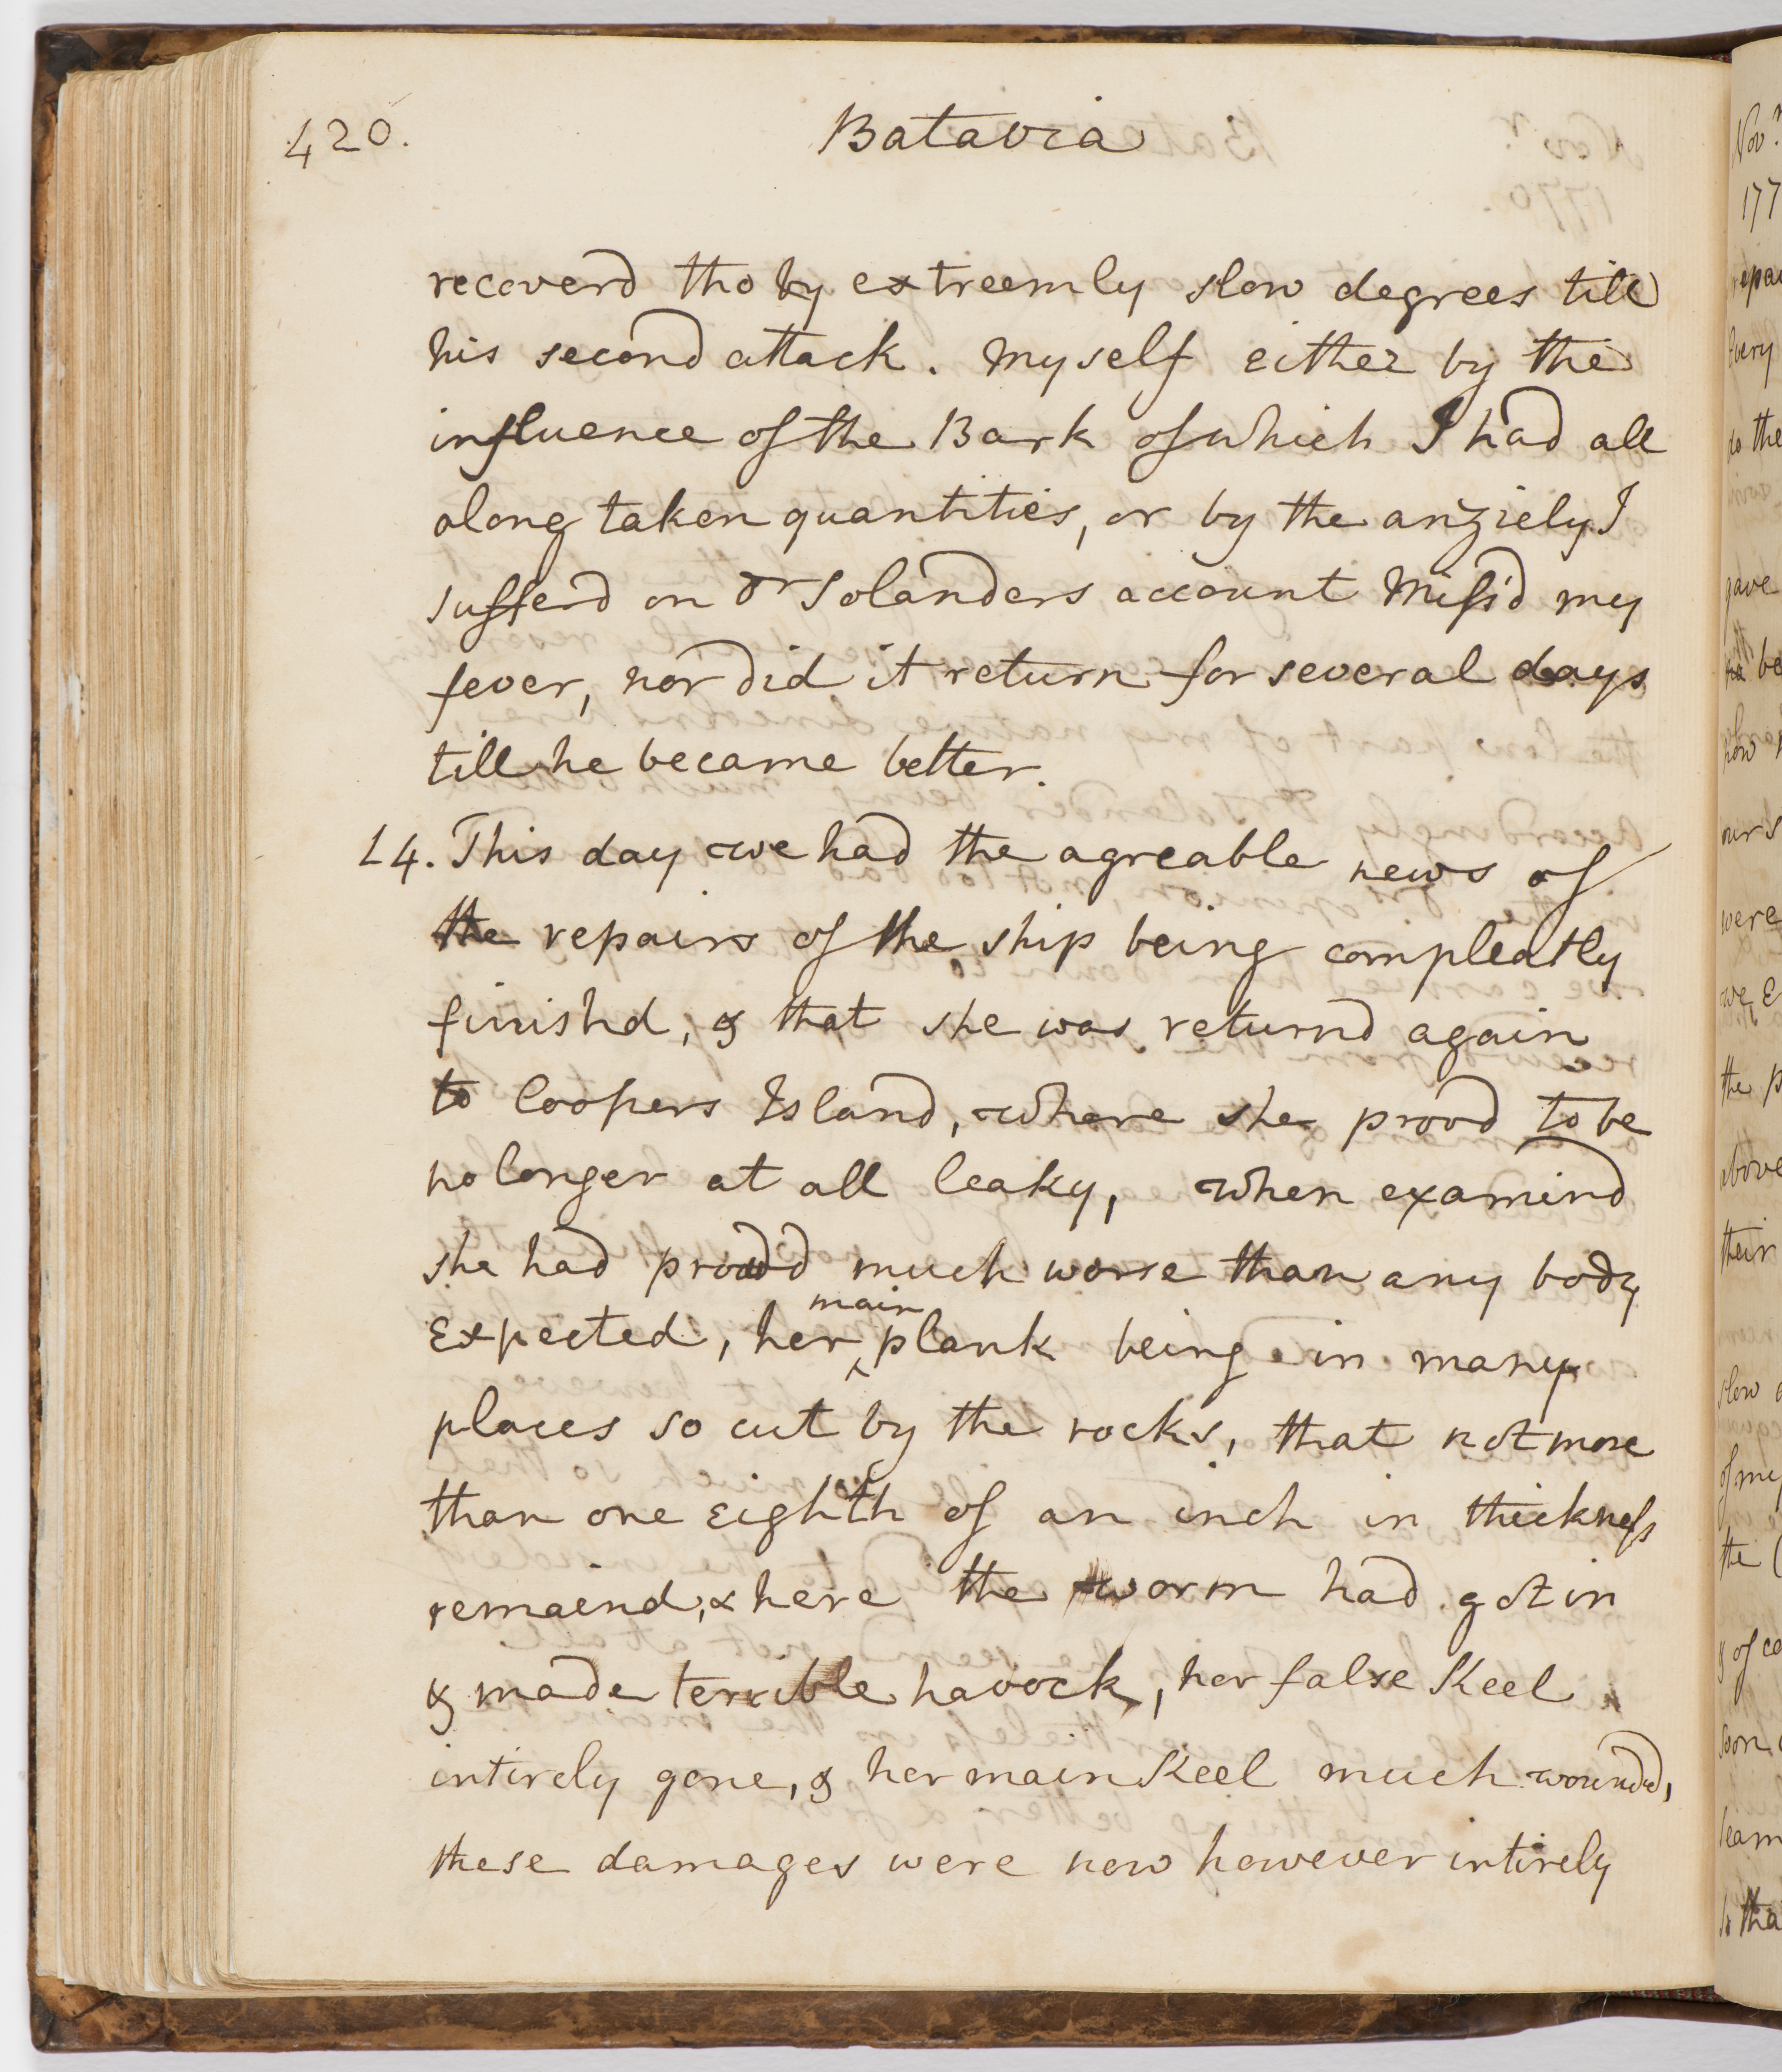 420.
Batavia
recoverd tho by extreemly slow degrees till
his second attack. Myself either by the
influence of the Bark of which I had all
along taken quantities, or by the anxiety I
sufferd on Dr Solanders account miss'd my
fever, nor did it return for several days
till he became better.
14. This day we had the agreable news of
the repairs of the ship being compleatly
finishd, & that she was returnd again
to Coopers Island, where she provd to be
no longer at all leaky, when examind
she had provd much worse than any body
Expected, her main plank being in many
places so cut by the rocks, that not more
than one Eighth of an inch in thickness
remaind, & here the worm had got in
& made terrible havock, her false Keel
intirely gone, & her main Keel much woundd,
these damages were now however intirely
Nov.r
177
very
to the
gave
be
were
the p
above
their
slow
of my
the
& of
soon